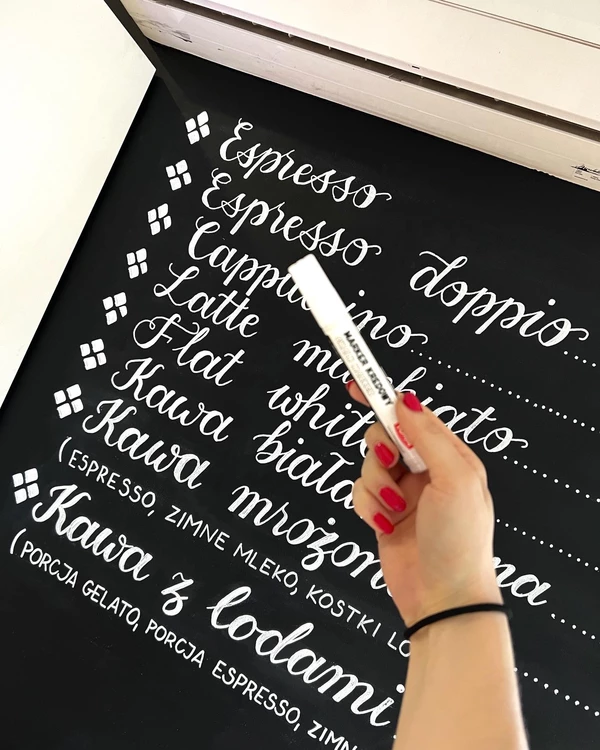 Espresso
Espresso doppio...
Cappuccino..............
Latte macchiato........
Flat white
Kawa biała
Kawa mrożona
(ESPRESSO, ZIMNE MLEKO, KOSTKI
Kawa z lodami
(PORCJA GELATO, PORCJA ESPRESSO,
MARKER KREDOWY